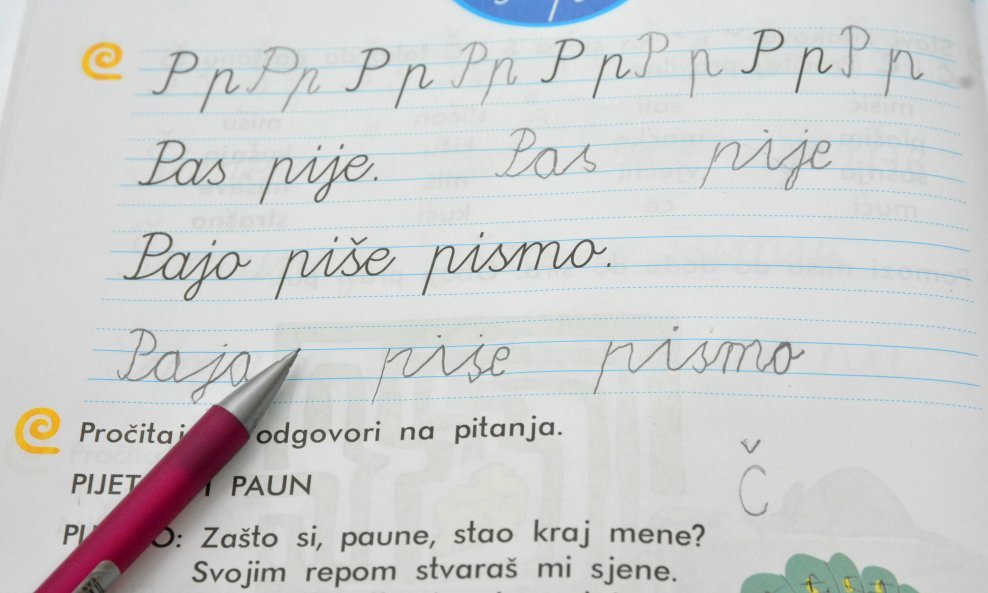 P p P p P p P p P p P p P p P p
Pas pije. Pas pije
Pajo piše pismo.
Pajo piše pismo
Pročitaj odgovori na pitanja.
Č
PIJET I PAUN
O: Zašto si, paune, stao kraj mene?
Svojim repom stvaraš mi sjene.